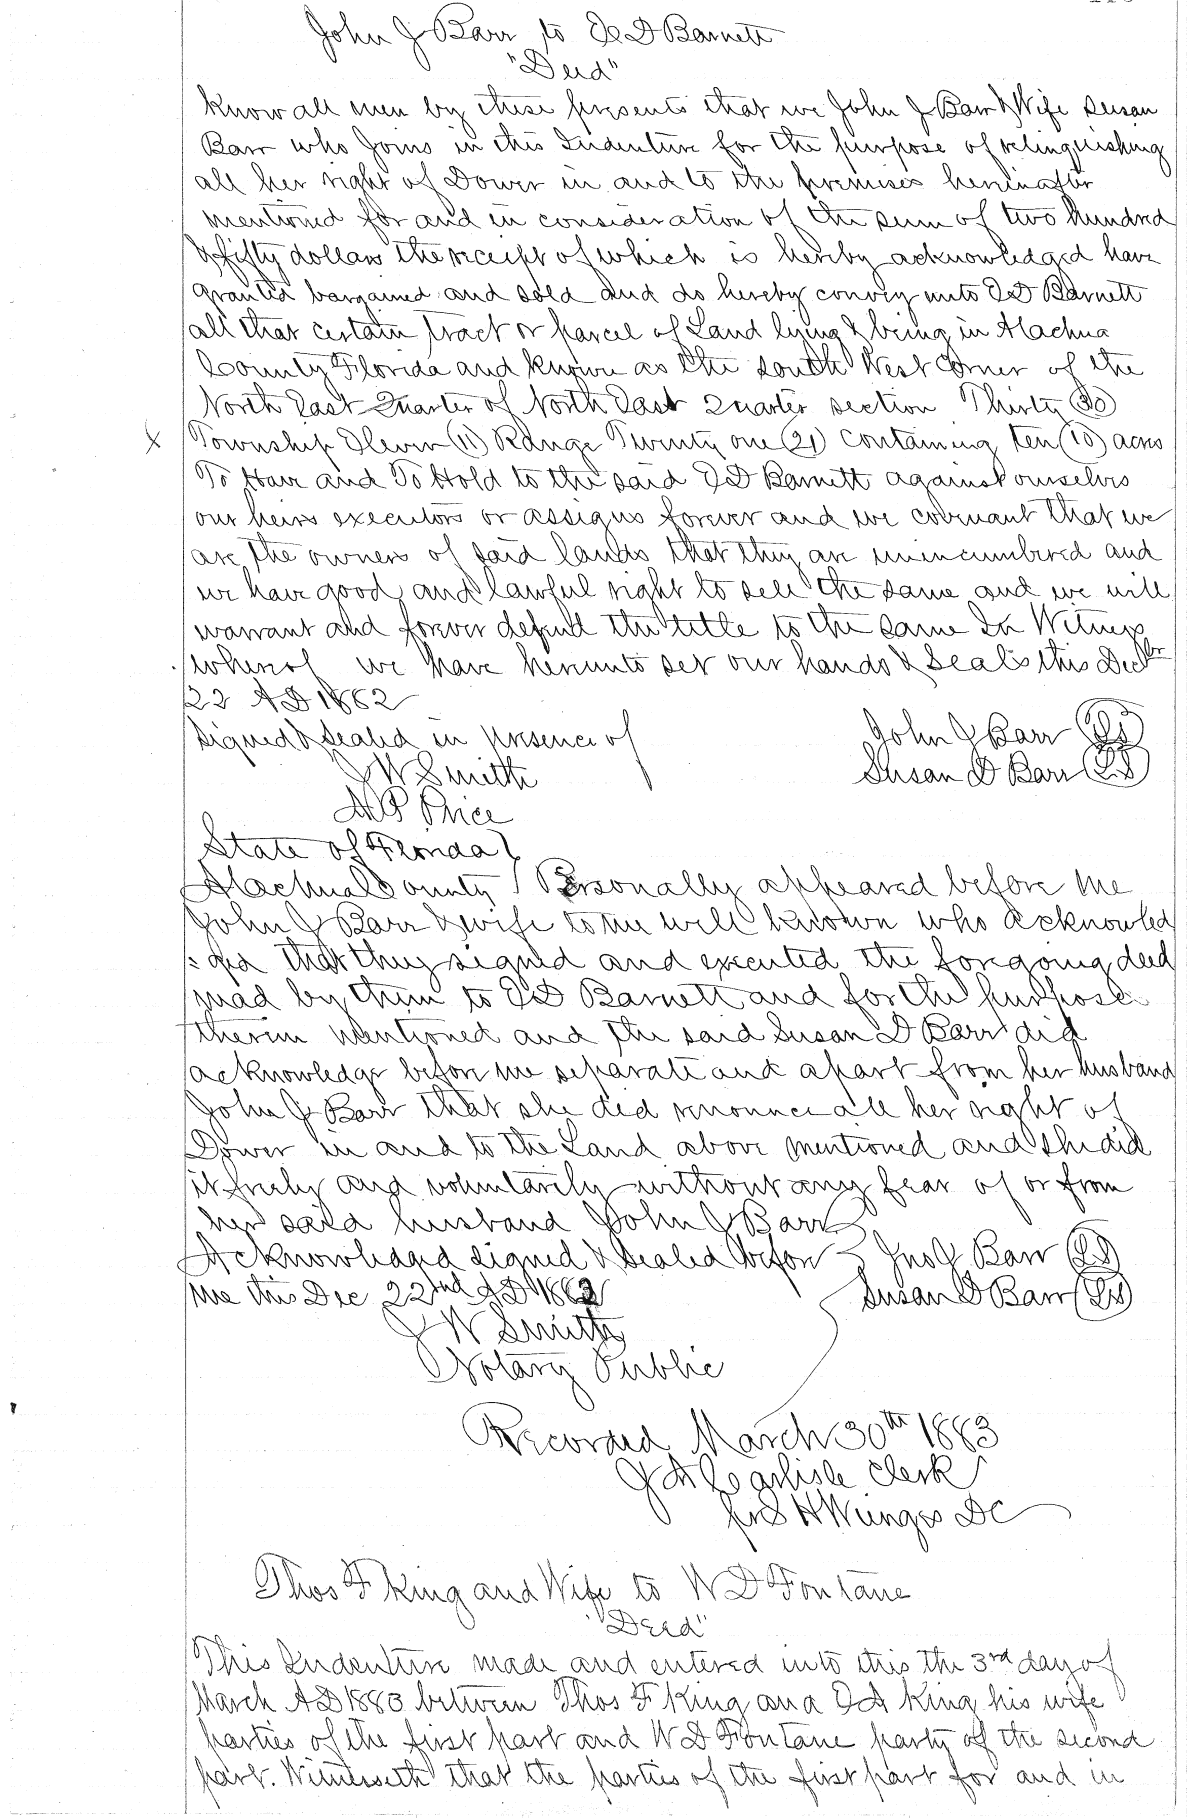 John J Barr to E D Barnett
"Deed"
Know all men by these presents that we John J Barr & Wife Susan
Barr who Joins in this Indenture for the purpose of relinquishing
all her right of Dower in and to the premises hereinafter
mentioned for and in consideration of the sum of two hundred
& fifty dollars the receipt of which is hereby acknowledged have
granted bargained and sold and do hereby convey unto E D Barnett
all that certain tract or parcel of Land lying & being in Alachua
County Florida and known as the South West Corner of the
North East Quarter of North East Quarter section Thirty (30)
x Township Eleven (11) Range Twenty one (21) containing ten (10) acres
To Have and To Hold to the said E D Barnett against ourselves
our heirs executors or assigns forever and we covenant that we
are the owners of said lands that they are unincumbered and
we have good and lawful right to sell the same and we will
warrant and forever defend the title to the same In Witness
whereof we have hereunto set our hands & Seals this Decbr
22 AD 1882
Signed & sealed in presence of John J Barr (LS)
J W Smith Susan D Barr (LS)
A P Price
State of Florida }
Alachua County } Personally appeared before me
John J Barr & wife to me well known who acknowled
:ged that they signed and executed the foregoing deed
mad by them to E D Barnett and for the purpose
therein mentioned and the said Susan D Barr did
acknowledge before me separate and apart from her husband
John J Barr that she did renounce all her right of
Dower in and to the Land above mentioned and she did
it freely and voluntarily without any fear of or from
her said husband John J Barr
Acknowledged signed & Sealed before } Jno J Barr (LS)
me this Dec 22nd AD 1882 Susan D Barr (LS)
J W Smith
Notary Public
Recorded March 30th 1883
J A Carlisle Clerk
per S H Wienges DC
Thos F King and Wife to W D Fontane
"Deed"
This Indenture made and entered into this the 3rd day of
March AD 1883 between Thos F King and E A King his wife
parties of the first part and W D Fontane party of the second
part. Witnesseth that the parties of the first part for and in